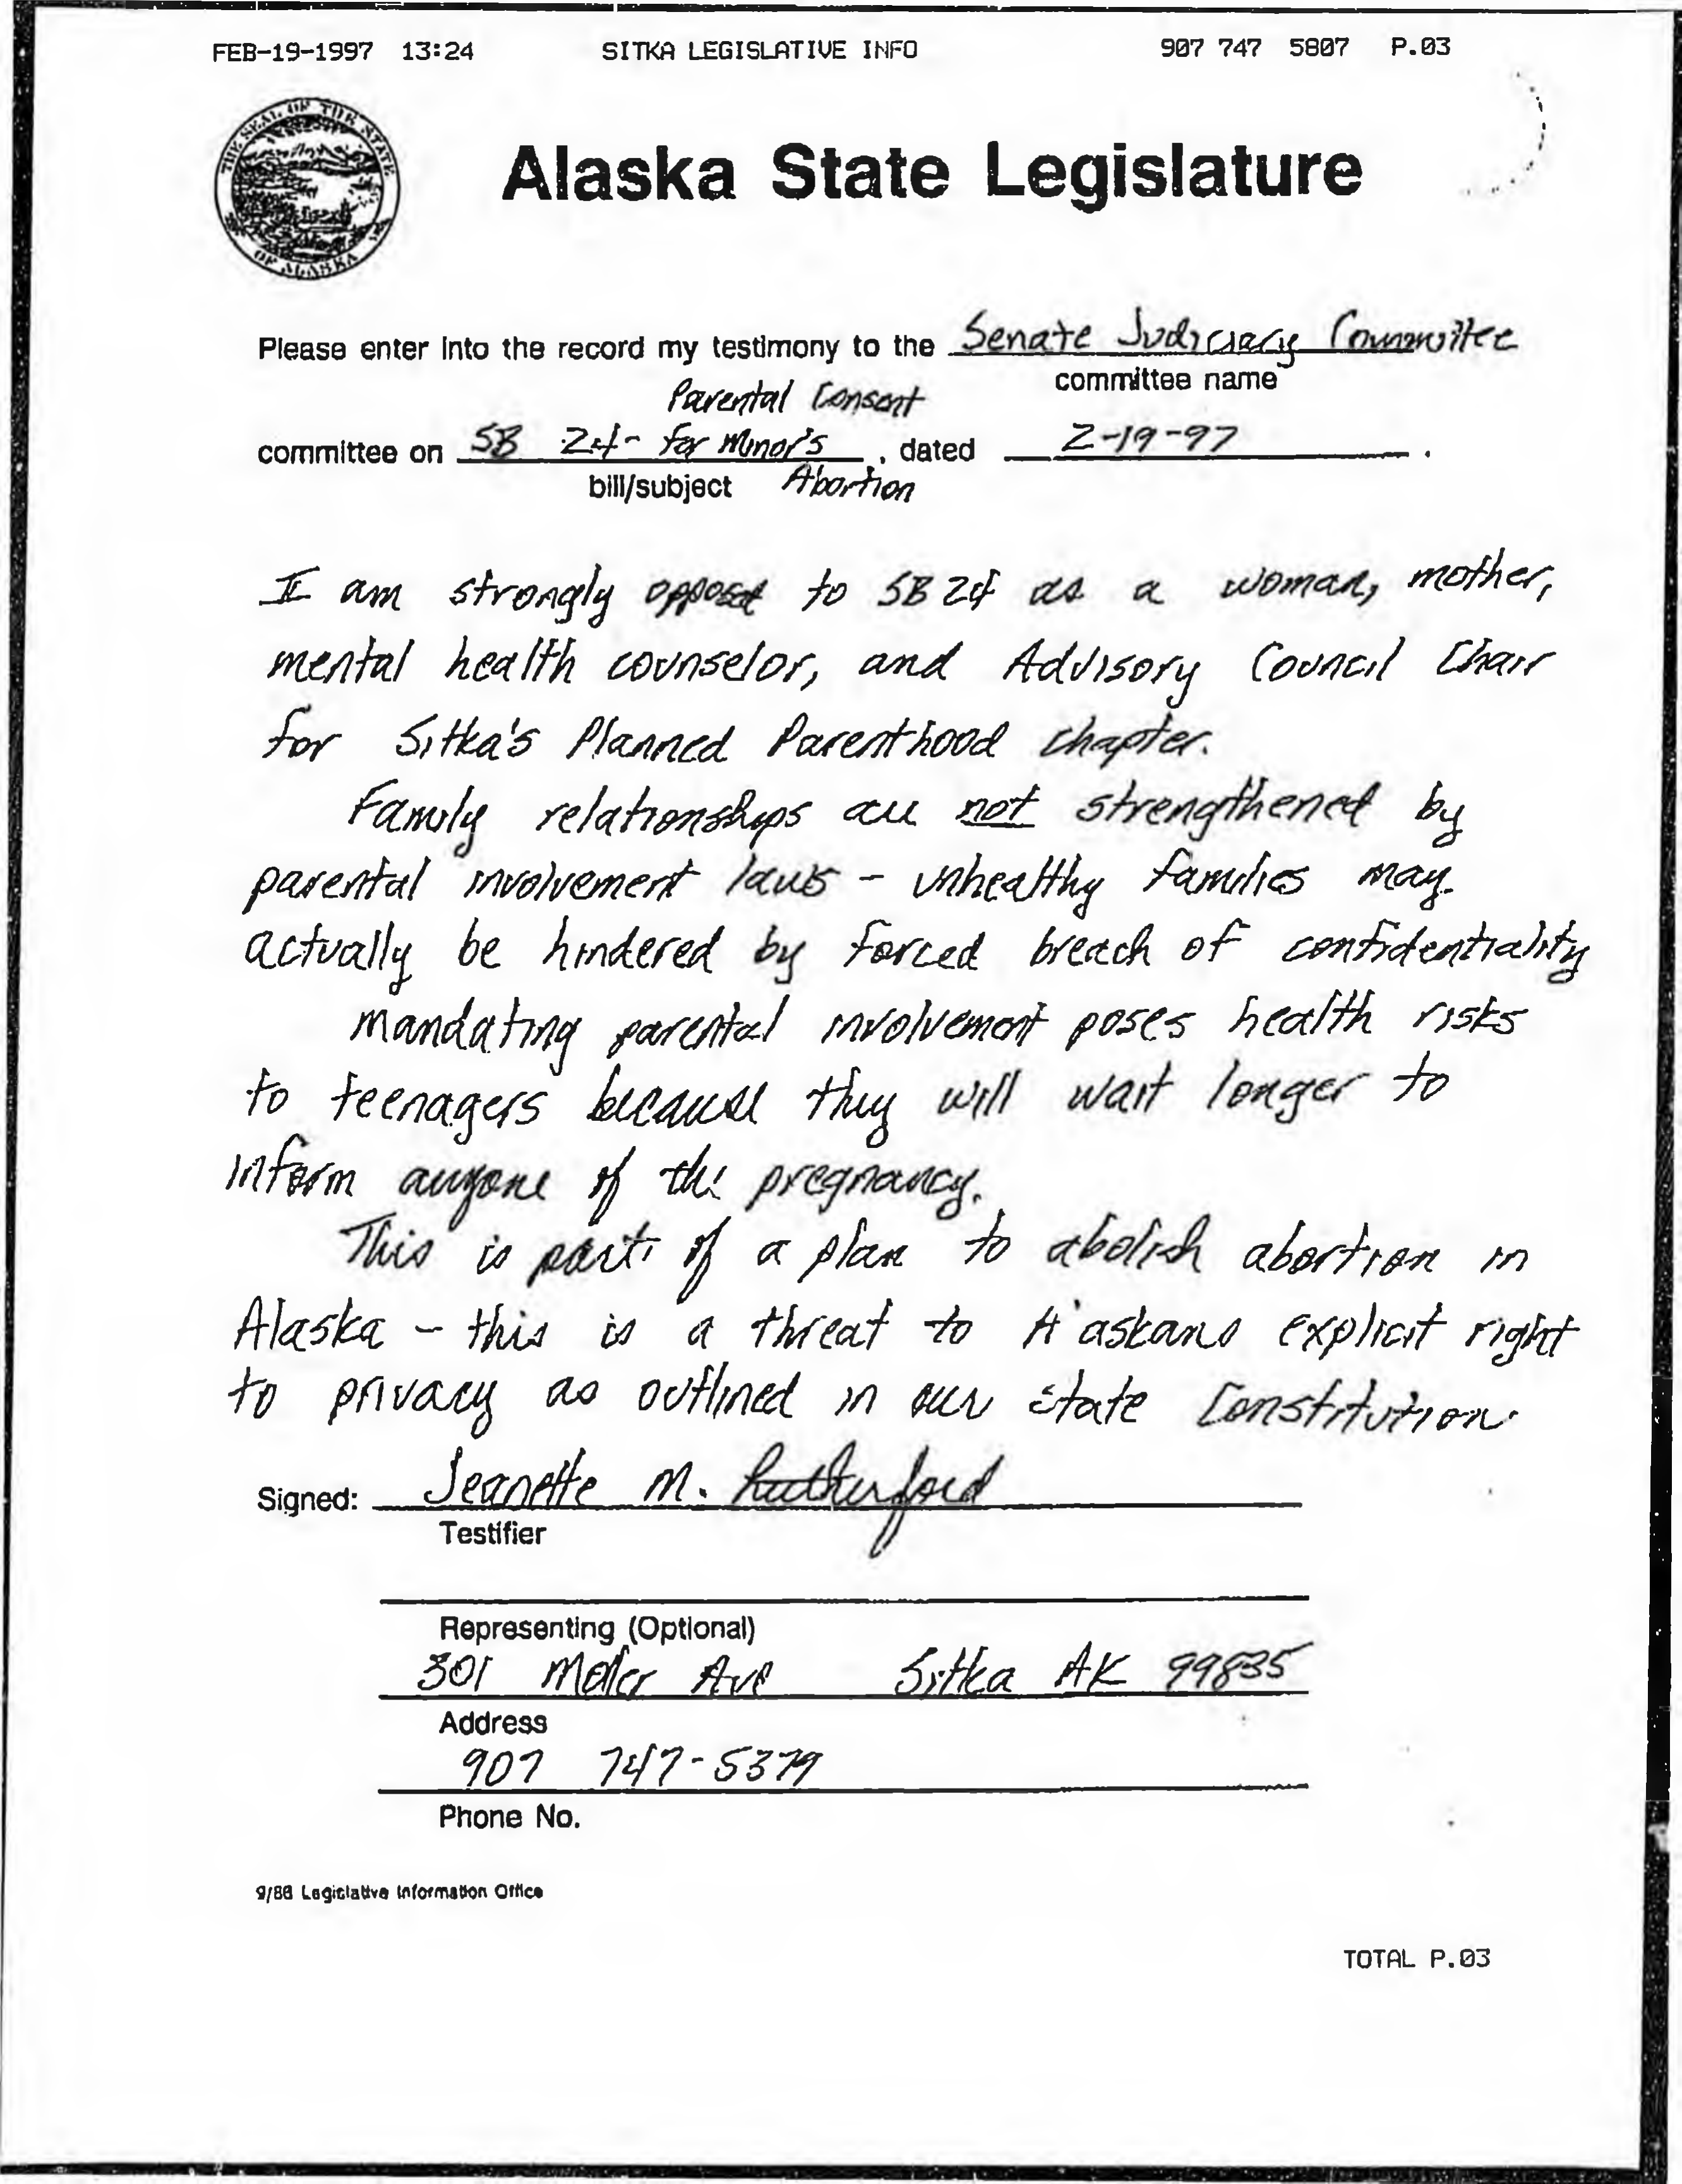 FEB-19-1997 13:24 SITKA LEGISLATIVE INFO 907 747 5807 P.03
THE SEAL OF THE STATE OF ALASKA
Alaska State Legislature
Please enter into the record my testimony to the Senate Judiciary Committee
committee name
Parental Consent
committee on SB 24- for Minor's , dated 2-19-97 .
bill/subject Abortion
I am strongly opposed to SB 24 as a woman, mother,
mental health counselor, and Advisory Council Chair
for Sitka's Planned Parenthood chapter.
Family relationships are not strengthened by
parental involvement laws - unhealthy families may
actually be hindered by forced breach of confidentiality
Mandating parental involvement poses health risks
to teenagers because they will wait longer to
inform anyone of the pregnancy.
This is part of a plan to abolish abortion in
Alaska - this is a threat to Alaskans explicit right
to privacy as outlined in our state Constitution.
Signed: Jeanette M. Rutherford
Testifier
Representing (Optional)
301 Moller Ave Sitka AK 99835
Address
907 747-5379
Phone No.
9/88 Legislative Information Office
TOTAL P.03